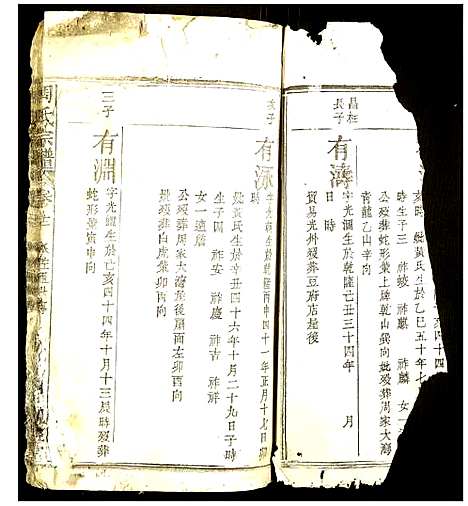 亥四十四
亥時 妣黃氏生於乙巳五十年七
時生子三 祚蛟 祚麒 祚麟 女一
公歿葬蛇形葉上屋乾山巽向妣歿葬周家大灣
青龍乙山辛向
昌柱
長子
有濤
字光 生於乾隆己丑三十四年 月
日 時
貿易光州歿葬豆府店屋後
次子
有泳
字光 生於乾隆丙申四十一年正月十七日
時
妣黃氏生於辛丑四十六年十月二十九日子時
生子四 祚安 祚慶 祚吉 祚祥
女一適蔣
公歿葬周家大灣屋後扇面左卯酉向
妣歿葬白虎葉卯酉向
三子
有淵
字光 生於己亥四十四年十月十三辰時歿葬
蛇形葉寅申向
周氏宗譜